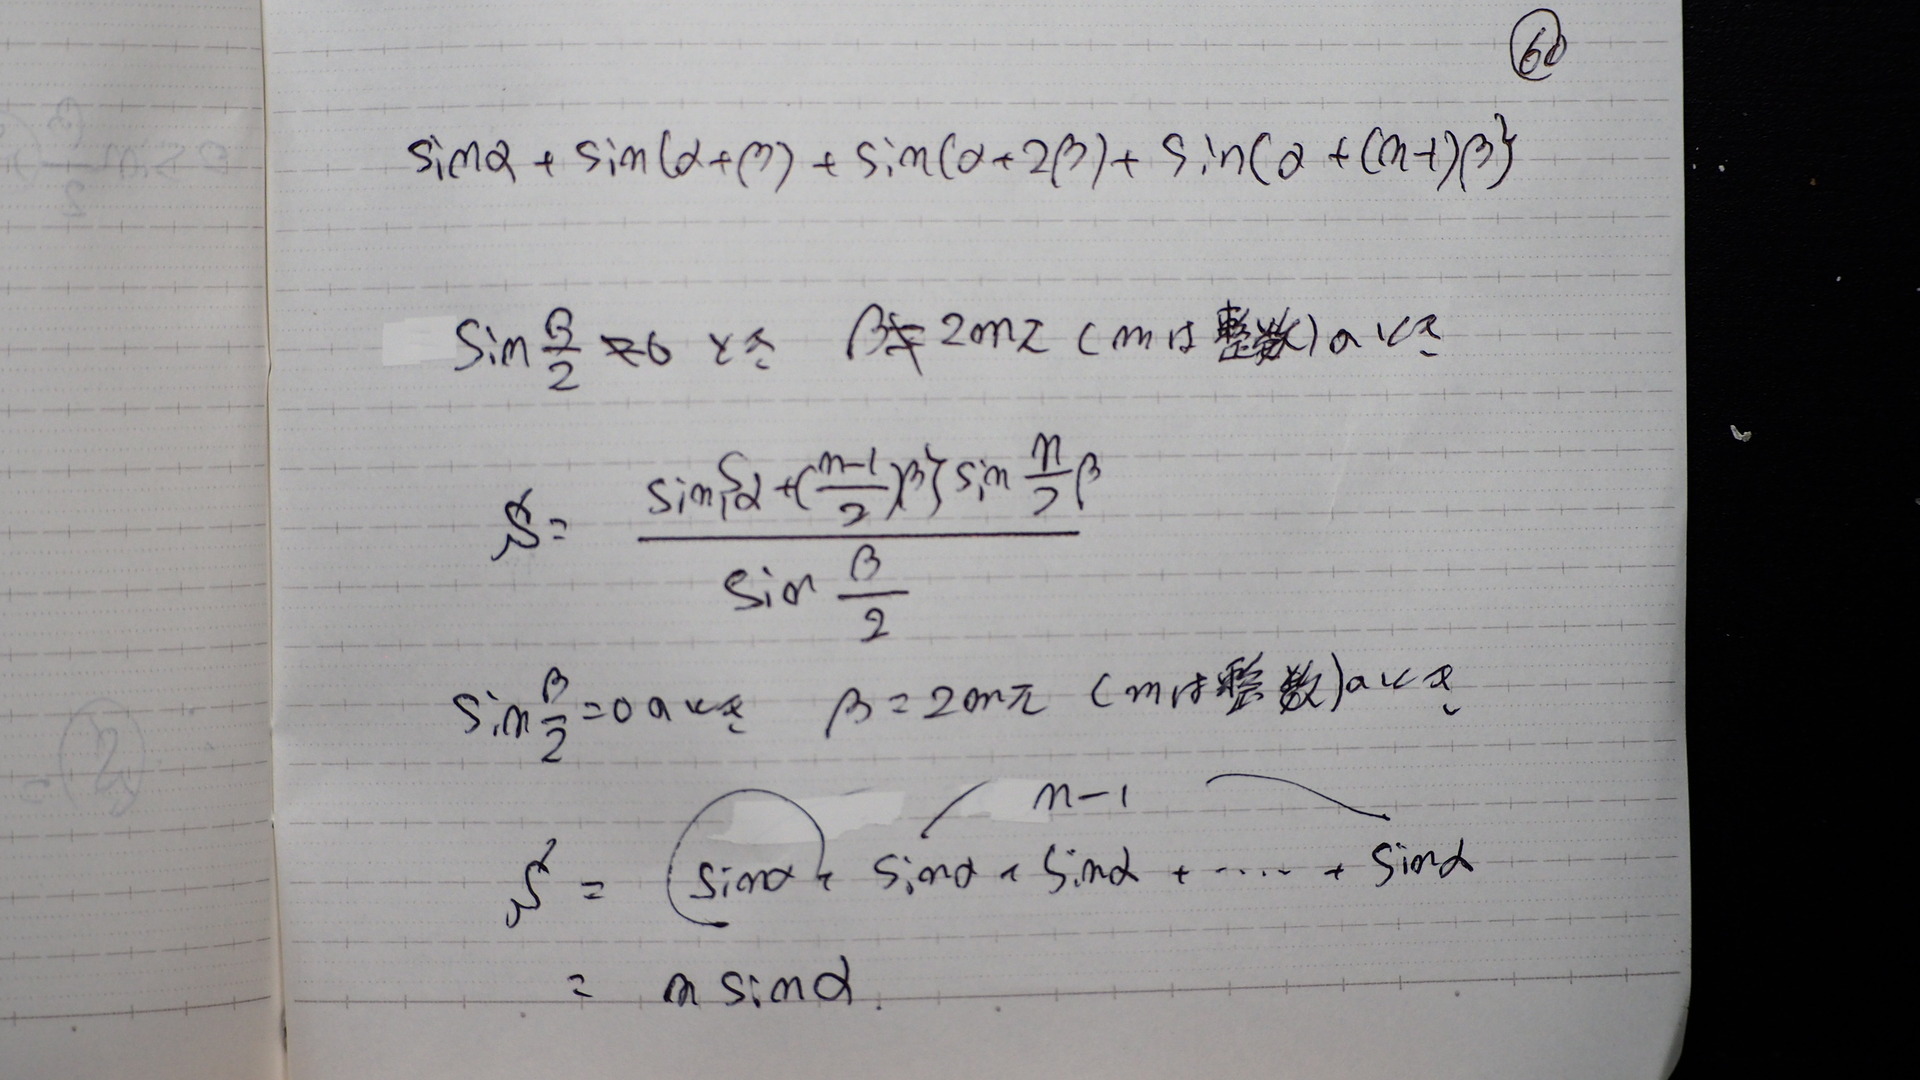 60
sinα + sin(α+β) + sin(α+2β) + sin{α + (n-1)β}
sin β/2 ≠0 とき β≠2mπ (mは整数)のとき
S = sin{α+(n-1/2)β} sin n/2 β / sin β/2
sin β/2 =0のとき β=2mπ (mは整数)のとき
n-1
S = sinα + sinα + sinα + ..... + sinα
= n sinα.